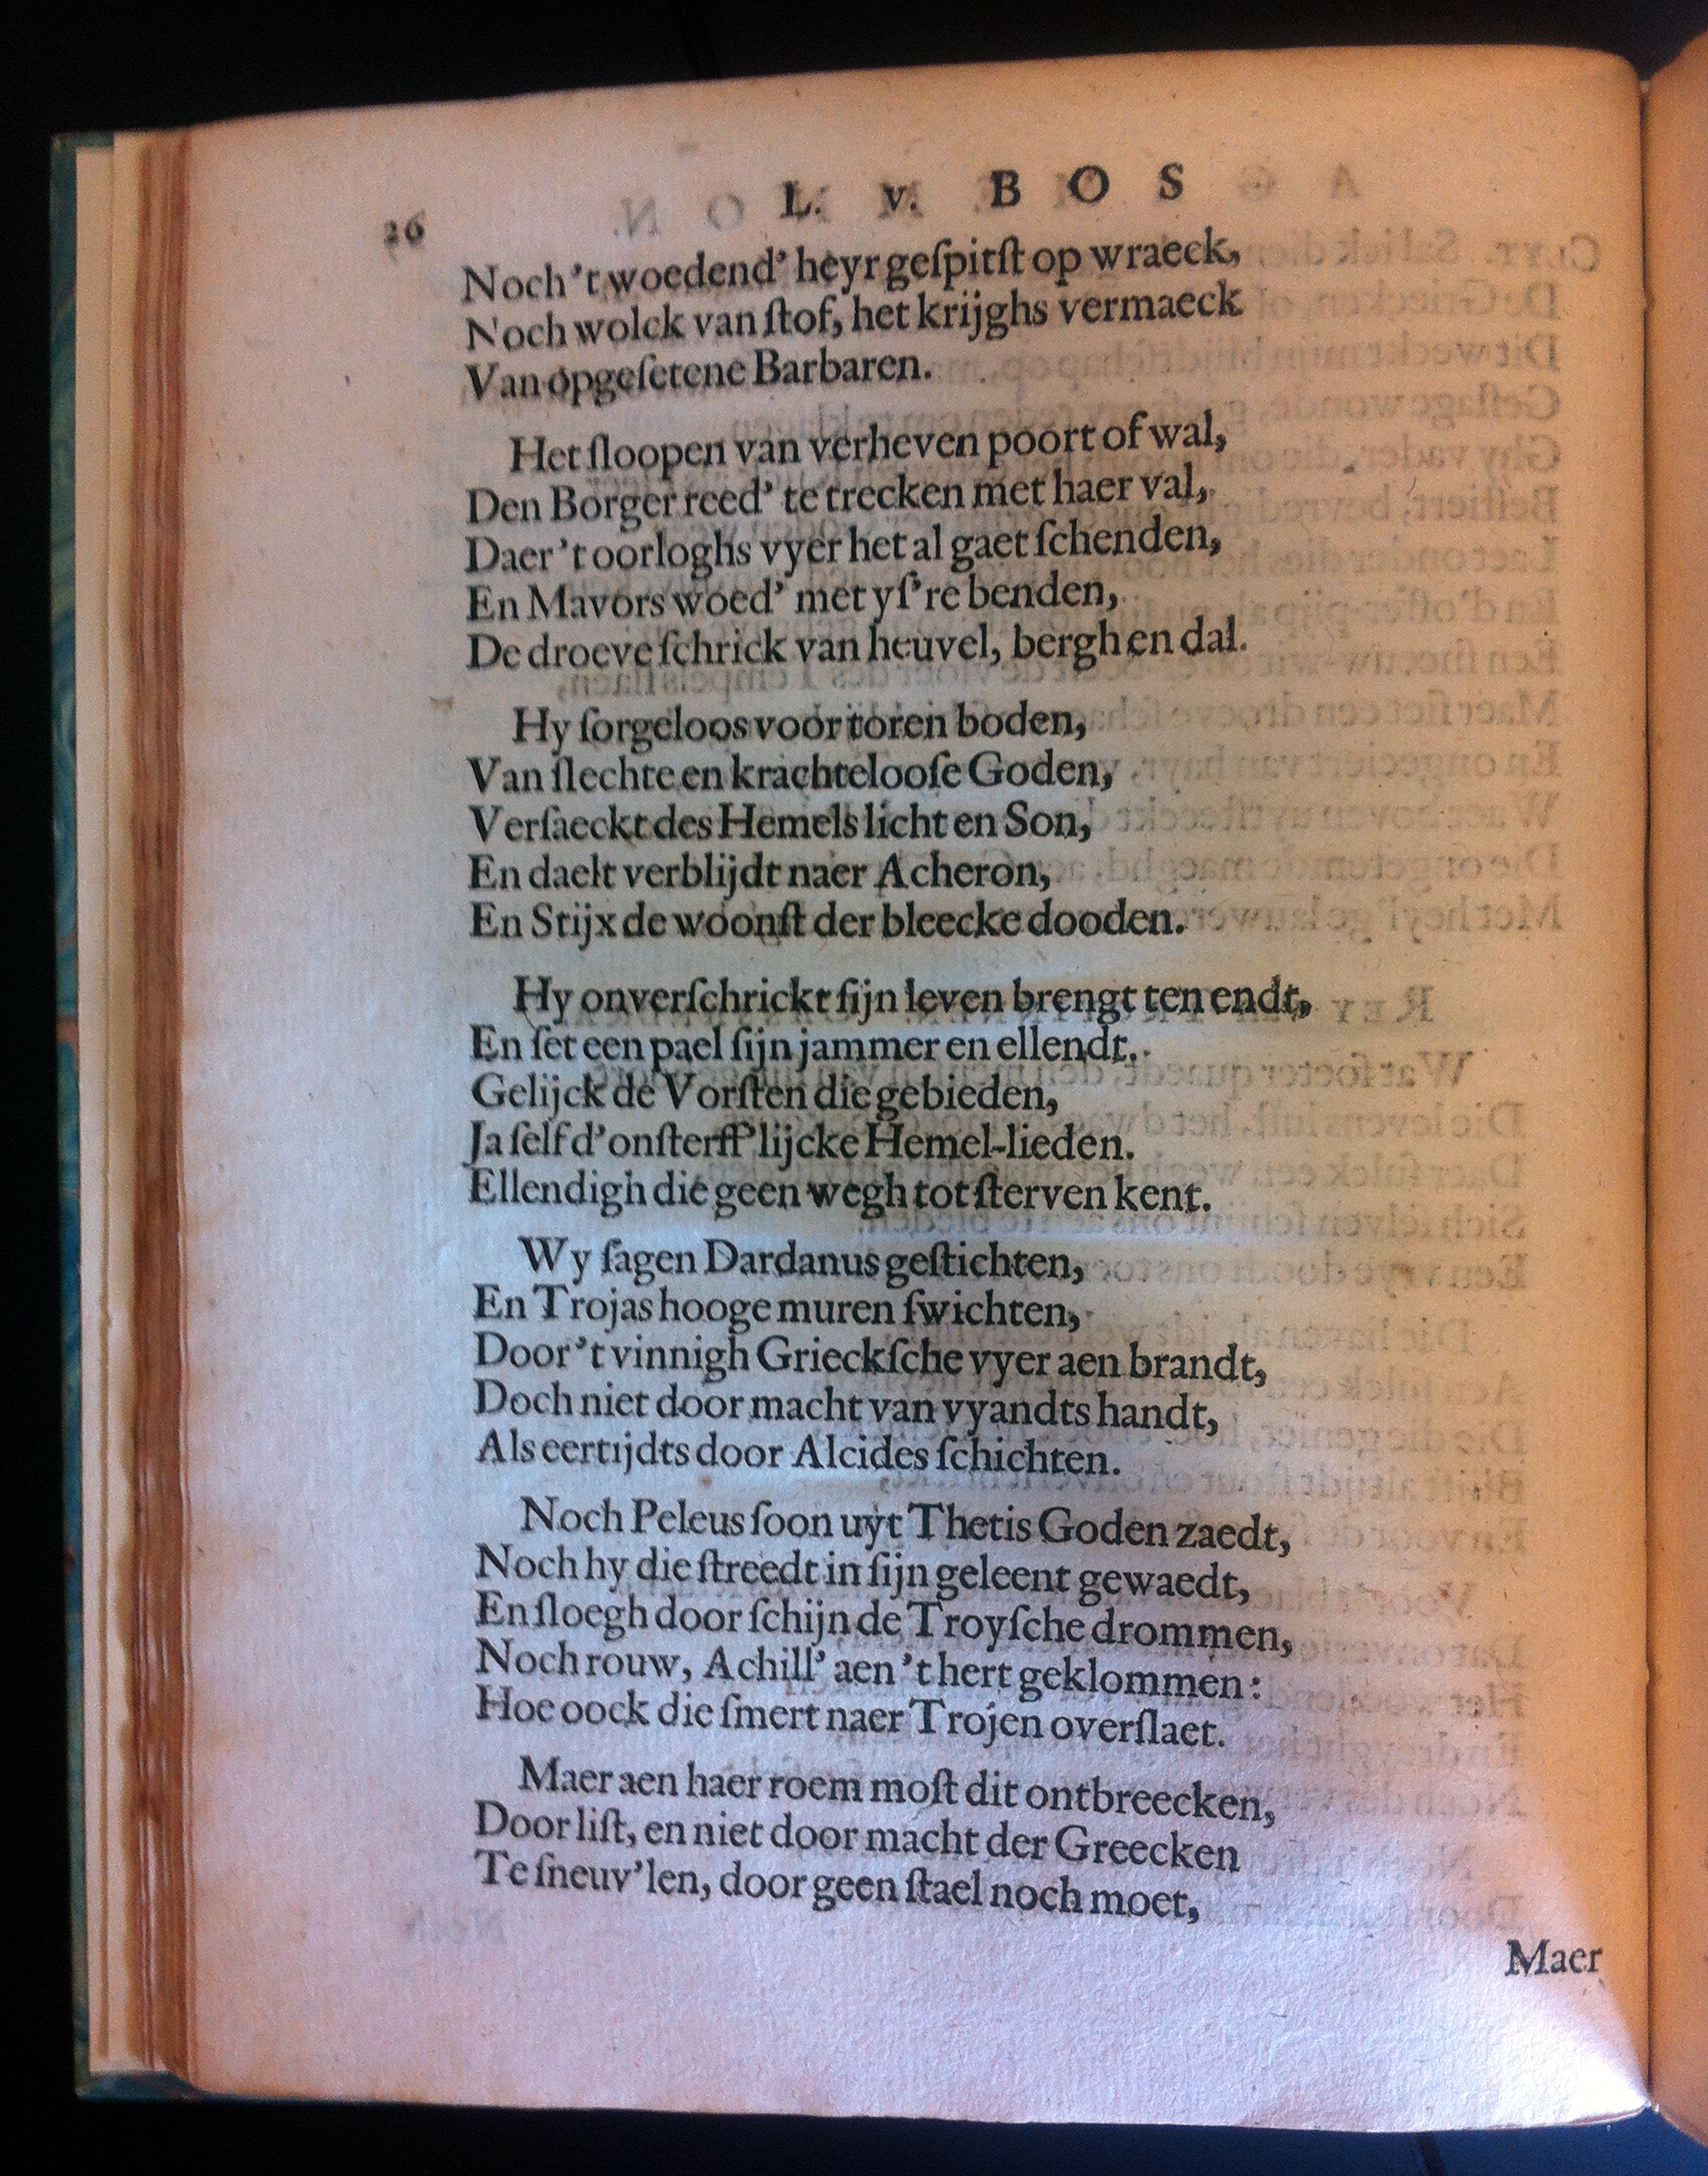 L. v. BOS
26
Noch 't woedend' heyr geſpitſt op wraeck,
Noch wolck van ſtof, het krijghs vermaeck
Van opgeſetene Barbaren.
Het ſloopen van verheven poort of wal,
Den Borger reed' te trecken met haer val,
Daer 't oorloghs vyer het al gaet ſchenden,
En Mavors woed' met yſ're benden,
De droeve ſchrick van heuvel, bergh en dal.
Hy ſorgeloos voor toren boden,
Van ſlechte en krachtelooſe Goden,
Verſaeckt des Hemels licht en Son,
En daelt verblijdt naer Acheron,
En Stijx de woonſt der bleecke dooden.
Hy onverſchrickt ſijn leven brengt ten endt,
En ſet een pael ſijn jammer en ellendt.
Gelijck de Vorſten die gebieden,
Ja ſelf d'onſterff'lijcke Hemel-lieden.
Ellendigh die geen wegh tot ſterven kent.
Wy ſagen Dardanus geſtichten,
En Trojas hooge muren ſwichten,
Door 't vinnigh Grieckſche vyer aen brandt,
Doch niet door macht van vyandts handt,
Als eertijdts door Alcides ſchichten.
Noch Peleus ſoon uyt Thetis Goden zaedt,
Noch hy die ſtreedt in ſijn geleent gewaedt,
En ſloegh door ſchijn de Troyſche drommen,
Noch rouw, Achill' aen 't hert geklommen:
Hoe oock die ſmert naer Trojen overſlaet.
Maer aen haer roem moſt dit ontbreecken,
Door liſt, en niet door macht der Greecken
Te ſneuv'len, door geen ſtael noch moet,
Maer